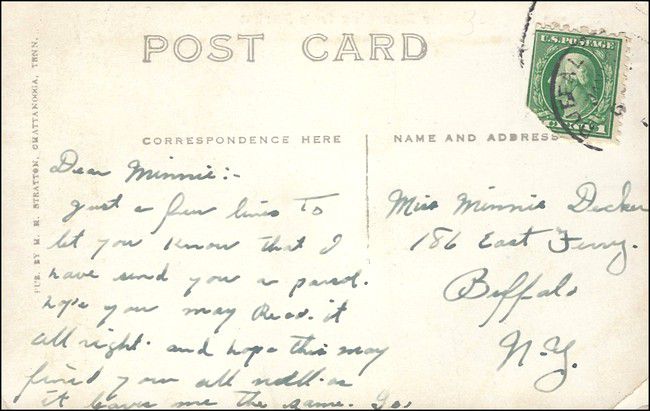 POST CARD
U.S. POSTAGE
CORRESPONDENCE HERE
NAME AND ADDRESS
PUB. BY M. M. STRATTON, CHATTANOOGA, TENN.
Dear Minnie:-
Just a few lines To
let you know that I
have send you a parsel.
hope you may Reac. it
all right. and hope this may
find you all well. as
it leaves me the same. Go.
Miss Minnie Decker
186 East Ferry.
Buffalo
N.Y.